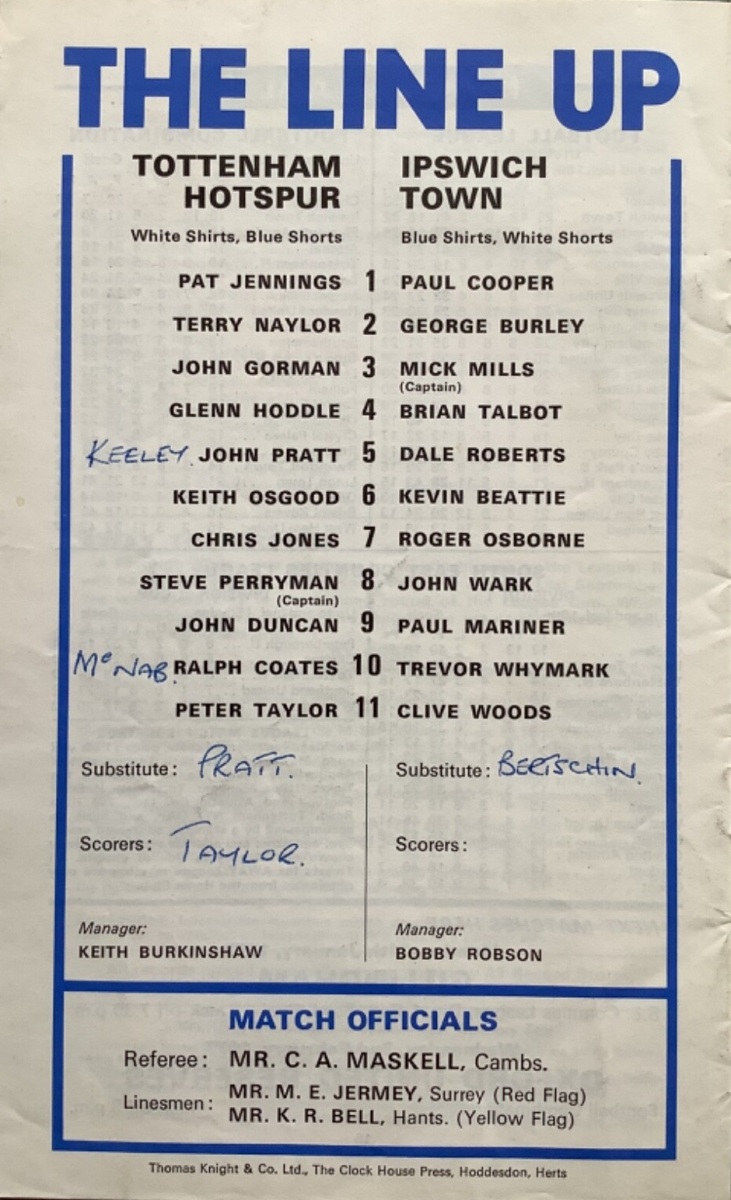 THE LINE UP
TOTTENHAM HOTSPUR
IPSWICH TOWN
White Shirts, Blue Shorts
Blue Shirts, White Shorts
PAT JENNINGS 1 PAUL COOPER
TERRY NAYLOR 2 GEORGE BURLEY
JOHN GORMAN 3 MICK MILLS
(Captain)
GLENN HODDLE 4 BRIAN TALBOT
KEELEY. JOHN PRATT 5 DALE ROBERTS
KEITH OSGOOD 6 KEVIN BEATTIE
CHRIS JONES 7 ROGER OSBORNE
STEVE PERRYMAN 8 JOHN WARK
(Captain)
JOHN DUNCAN 9 PAUL MARINER
McNAB. RALPH COATES 10 TREVOR WHYMARK
PETER TAYLOR 11 CLIVE WOODS
Substitute: PRATT. Substitute: BERTSCHIN.
Scorers: TAYLOR. Scorers:
Manager: Manager:
KEITH BURKINSHAW BOBBY ROBSON
MATCH OFFICIALS
Referee: MR. C. A. MASKELL, Cambs.
Linesmen: MR. M. E. JERMEY, Surrey (Red Flag)
MR. K. R. BELL, Hants. (Yellow Flag)
Thomas Knight & Co. Ltd., The Clock House Press, Hoddesdon, Herts